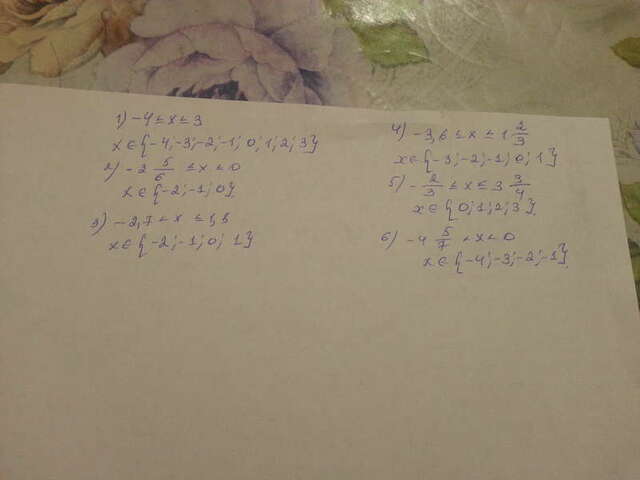 1) -4 ≤ x ≤ 3
x ∈ {-4; -3; -2; -1; 0; 1; 2; 3}
2) -2 5/6 ≤ x ≤ 0
x ∈ {-2; -1; 0}
3) -2,7 < x ≤
x ∈ {-2; -1; 0; 1}
4) -3,6 ≤ x ≤ 1 2/3
x ∈ {-3; -2; -1; 0; 1}
5) -2/3 ≤ x ≤ 3 3/4
x ∈ {0; 1; 2; 3}
6) -4 5/7 < x < 0
x ∈ {-4; -3; -2; -1}